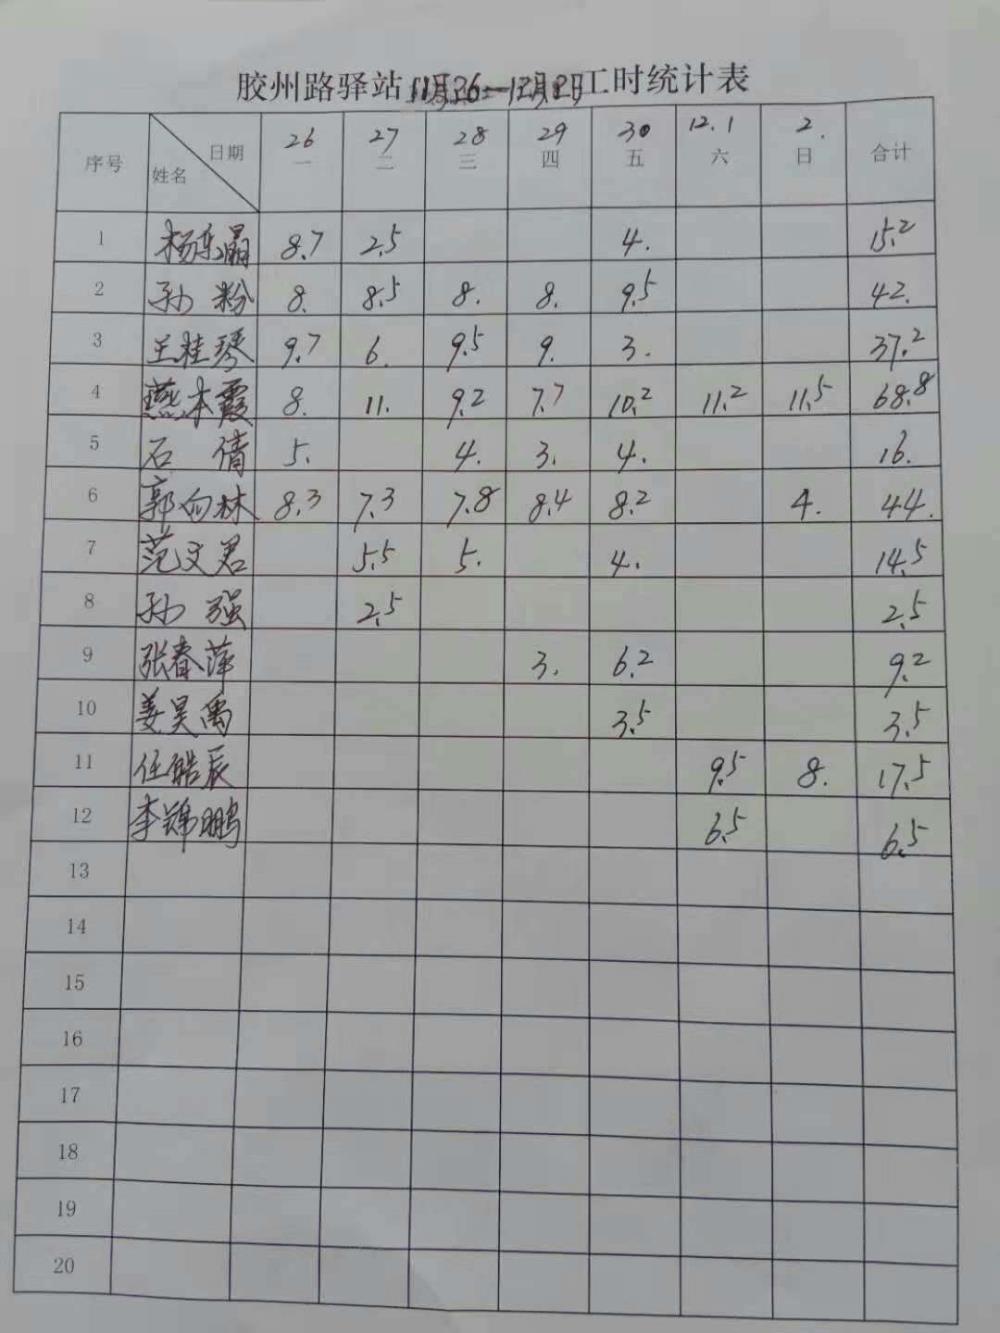 胶州路驿站11月26—12月2日工时统计表
序号 日期 姓名 26 一 27 二 28 三 29 四 30 五 12.1 六 2. 日 合计
1 杨东晶 8.7 2.5 4. 15.2
2 孙粉 8. 8.5 8. 8. 9.5 42.
3 王桂琴 9.7 6. 9.5 9. 3. 37.2
4 燕本霞 8. 11. 9.2 7.7 10.2 11.2 11.5 68.8
5 石倩 5. 4. 3. 4. 16.
6 郭向林 8.3 7.3 7.8 8.4 8.2 4. 44.
7 范文君 5.5 5. 4. 14.5
8 孙强 2.5 2.5
9 张春萍 3. 6.2 9.2
10 姜昊禹 3.5 3.5
11 任皓辰 9.5 8. 17.5
12 李郑鹏 6.5 6.5
13
14
15
16
17
18
19
20